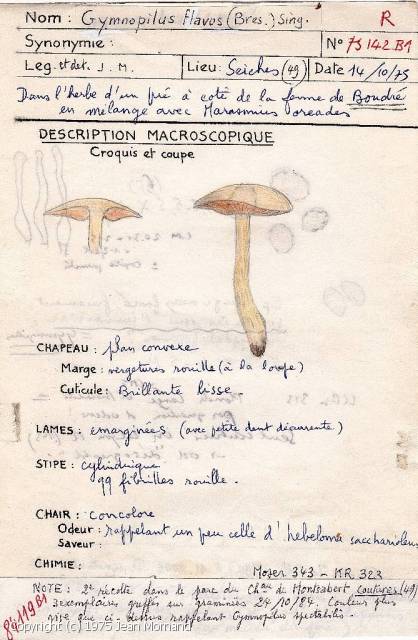 Nom : Gymnopilus flavus (Bres.) Sing. R
Synonymie : N° 75 142 B1
Leg. et det. J. M. Lieu: Seiches (49) Date 14/10/75
Dans l'herbe d'un pré à coté de la ferme de Boudré
en mélange avec Marasmius oreades
DESCRIPTION MACROSCOPIQUE
Croquis et coupe
CHAPEAU : plan convexe
Marge : vergetures rouille (à la loupe)
Cuticule : Brillante lisse
LAMES : emarginées (avec petite dent décurrente)
STIPE : cylindrique
qq fibrilles rouille.
CHAIR : Concolore
Odeur : rappelant un peu celle d'hebeloma sacchariolens
Saveur :
CHIMIE :
Moser 343 - KR 323
NOTE : 2e récolte dans le parc du Chau de Montsabert Coutures (49)
3 exemplaires greffés sur graminées 24/10/84. Couleur plus
vive que ci dessus rappelant Gymnopilus spectabilis.
84119B1
Copyright (c) 1975 Jean Mornand